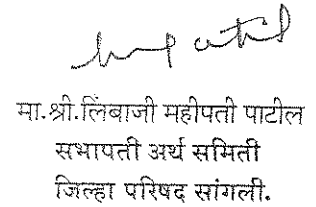 मा.श्री.लिंबाजी महीपती पाटील
सभापती अर्थ समिती
जिल्हा परिषद सांगली.